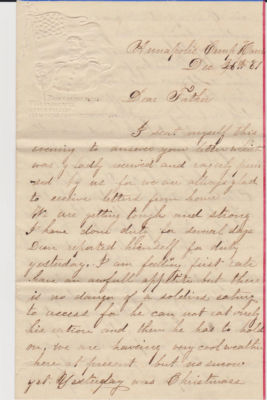 Annapolis Camp
Dec 26th 61
Dear Father
I seat myself this
evening to answer your letter which
was gladly received and eagerly peru
sed by us for we are always glad
to receive letters from home
We are getting tough and strong
I have done duty for several days
Dan reported himself for duty
yesterday. I am feeling first rate
have an awfull appetite but there
is no danger of a soldier eating
to access for he can not eat only
his ration and then he has to hold
on, we are haveing very cool weather
here at present but no snow
yet. Yesterday was Christmas